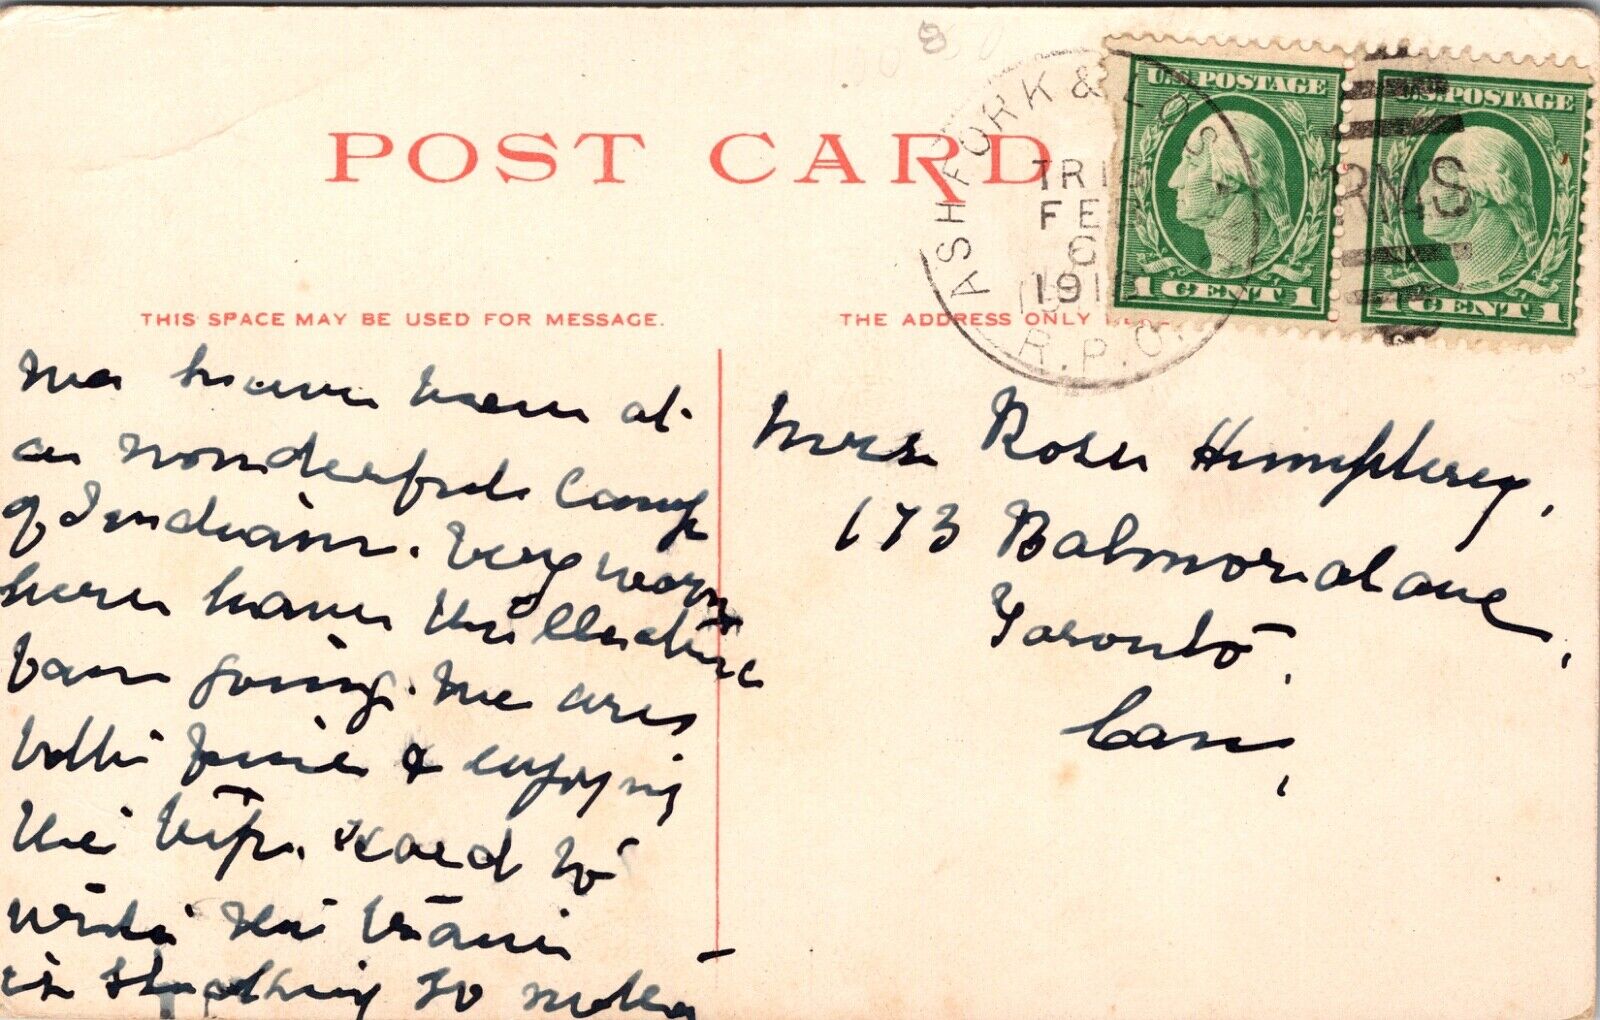 POST CARD
THIS SPACE MAY BE USED FOR MESSAGE.
THE ADDRESS ONLY
ASH FORK & LOS
TR 
FE
6
191
R.P.O.
RMS
U.S. POSTAGE
1 CENT 1
U.S. POSTAGE
1 CENT 1
We have been at
a wonderful Camp
of Indians. Very warm
here have the
fan going. We are
both fine & enjoying
the trip. Hard to
write the train
is shaking so
Mrs Rose Humphrey,
173 Balmoral ave,
Toronto,
Can,